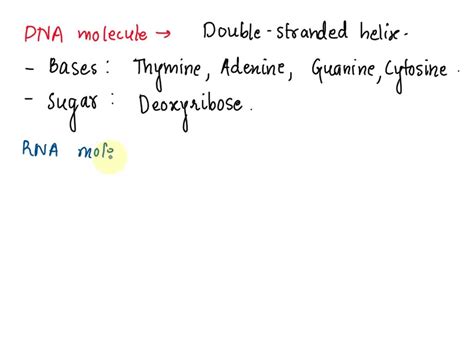 DNA molecule → Double-stranded helix.
- Bases: Thymine, Adenine, Guanine, Cytosine.
- Sugar: Deoxyribose.
RNA mol